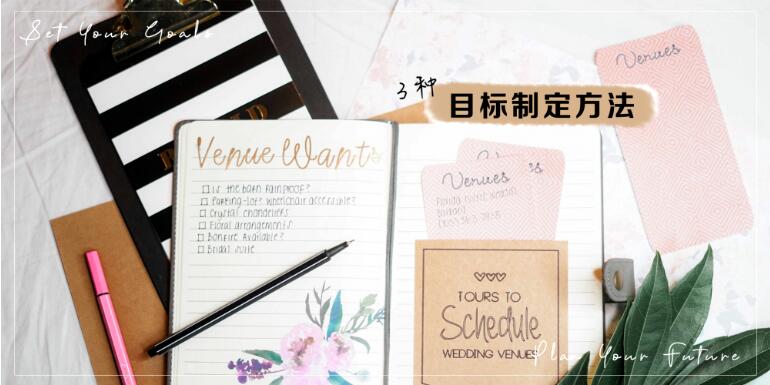 Set Your Goals
3种
目标制定方法
Venues
Venue Wants
Is the barn rainproof?
Parking-lot wheelchair accessible?
Crystal chandeliers
Floral arrangements
Bonfire Available?
Bridal suite
Venues
TOURS TO
Schedule
WEDDING VENUES
Plan Your Future